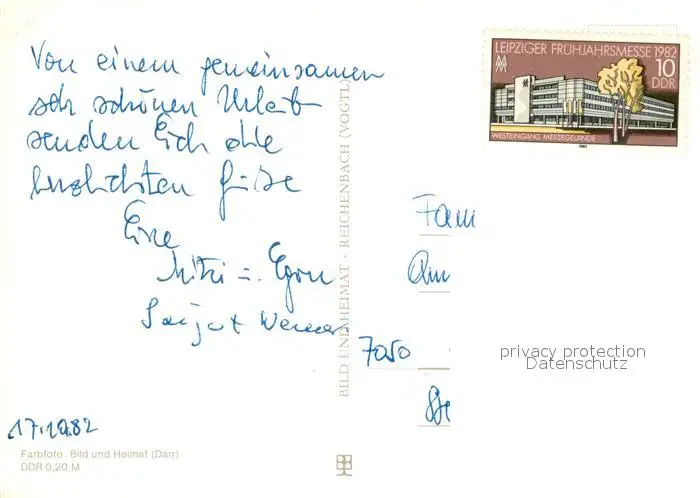 Von einem gemeinsamen
sehr schönen Urlaub
senden Euch die
herzlichsten Grüße
Eure
u. Egon
Werner
17.10.82
Farbfoto: Bild und Heimat (Darr)
DDR 0,20 M
BILD UND HEIMAT · REICHENBACH (VOGTL)
LEIPZIGER FRÜHJAHRSMESSE 1982
10
DDR
WESTEINGANG MESSEGELÄNDE
1982
Fam
Am
7050
privacy protection
Datenschutz